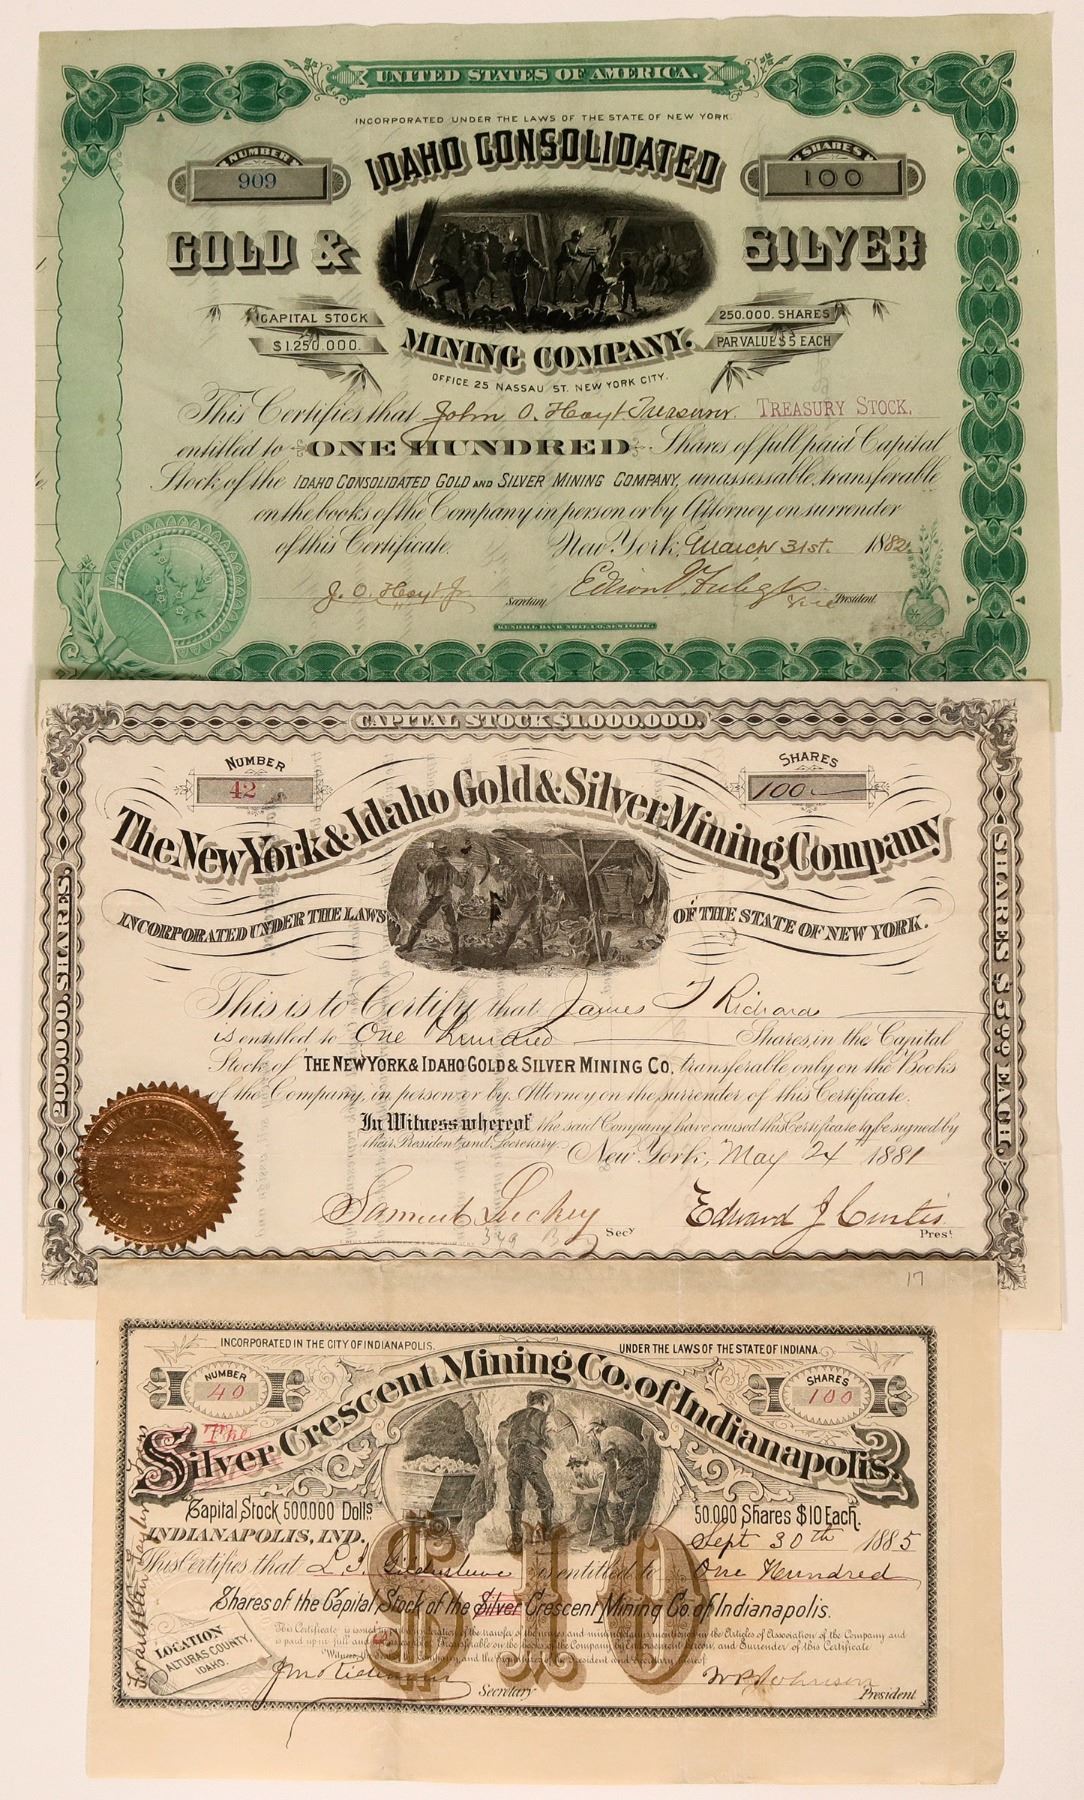 UNITED STATES OF AMERICA.
INCORPORATED UNDER THE LAWS OF THE STATE OF NEW YORK.
NUMBER
909
IDAHO CONSOLIDATED
SHARES
100
GOLD & SILVER
CAPITAL STOCK
$1.250.000.
250.000. SHARES
PAR VALUE $5 EACH
MINING COMPANY.
OFFICE 25 NASSAU ST. NEW YORK CITY.
This Certifies that John O. Hoyt Treasurer. TREASURY STOCK.
entitled to ONE HUNDRED Shares of full paid Capital
Stock of the IDAHO CONSOLIDATED GOLD AND SILVER MINING COMPANY, unassessable, transferable
on the books of the Company in person or by Attorney on surrender
of this Certificate. New York, March 31st. 1882
J. O. Hoyt Jr. Secretary. Vice President.
KENDALL BANK NOTE CO. NEW YORK.
CAPITAL STOCK $1.000.000.
NUMBER
42
SHARES
100
The New York & Idaho Gold & Silver Mining Company
INCORPORATED UNDER THE LAWS OF THE STATE OF NEW YORK.
200,000, SHARES.
SHARES $5 00 EACH.
This is to Certify that James T Richards
is entitled to One hundred Shares, in the Capital
Stock of THE NEW YORK & IDAHO GOLD & SILVER MINING CO, transferable only on the Books
of the Company, in person or by Attorney on the surrender of this Certificate.
In Witness whereof the said Company have caused this Certificate to be signed by
their President and Secretary.
New York, May 24 1881
Samuel Luckey Secy Edward J Curtis Prest
17
INCORPORATED IN THE CITY OF INDIANAPOLIS. UNDER THE LAWS OF THE STATE OF INDIANA.
NUMBER
40
SHARES
100
The
Silver Crescent Mining Co. of Indianapolis.
Capital Stock 500.000 Dolls.
50.000 Shares $10 Each.
INDIANAPOLIS, IND. Sept 30th 1885
$10
This Certifies that is entitled to One Hundred
Shares of the Capital Stock of the Silver Crescent Mining Co. of Indianapolis.
LOCATION
ALTURAS COUNTY,
IDAHO.
This Certificate is issued in consideration of the transfer of mines and mining in the Articles of Association of the Company and
is paid up in full and Transferable on the books of the Company by Endorsement hereon, and Surrender of this Certificate
Witness the Company, and the Signatures of the President and Secretary thereof
Secretary W P Johnson President